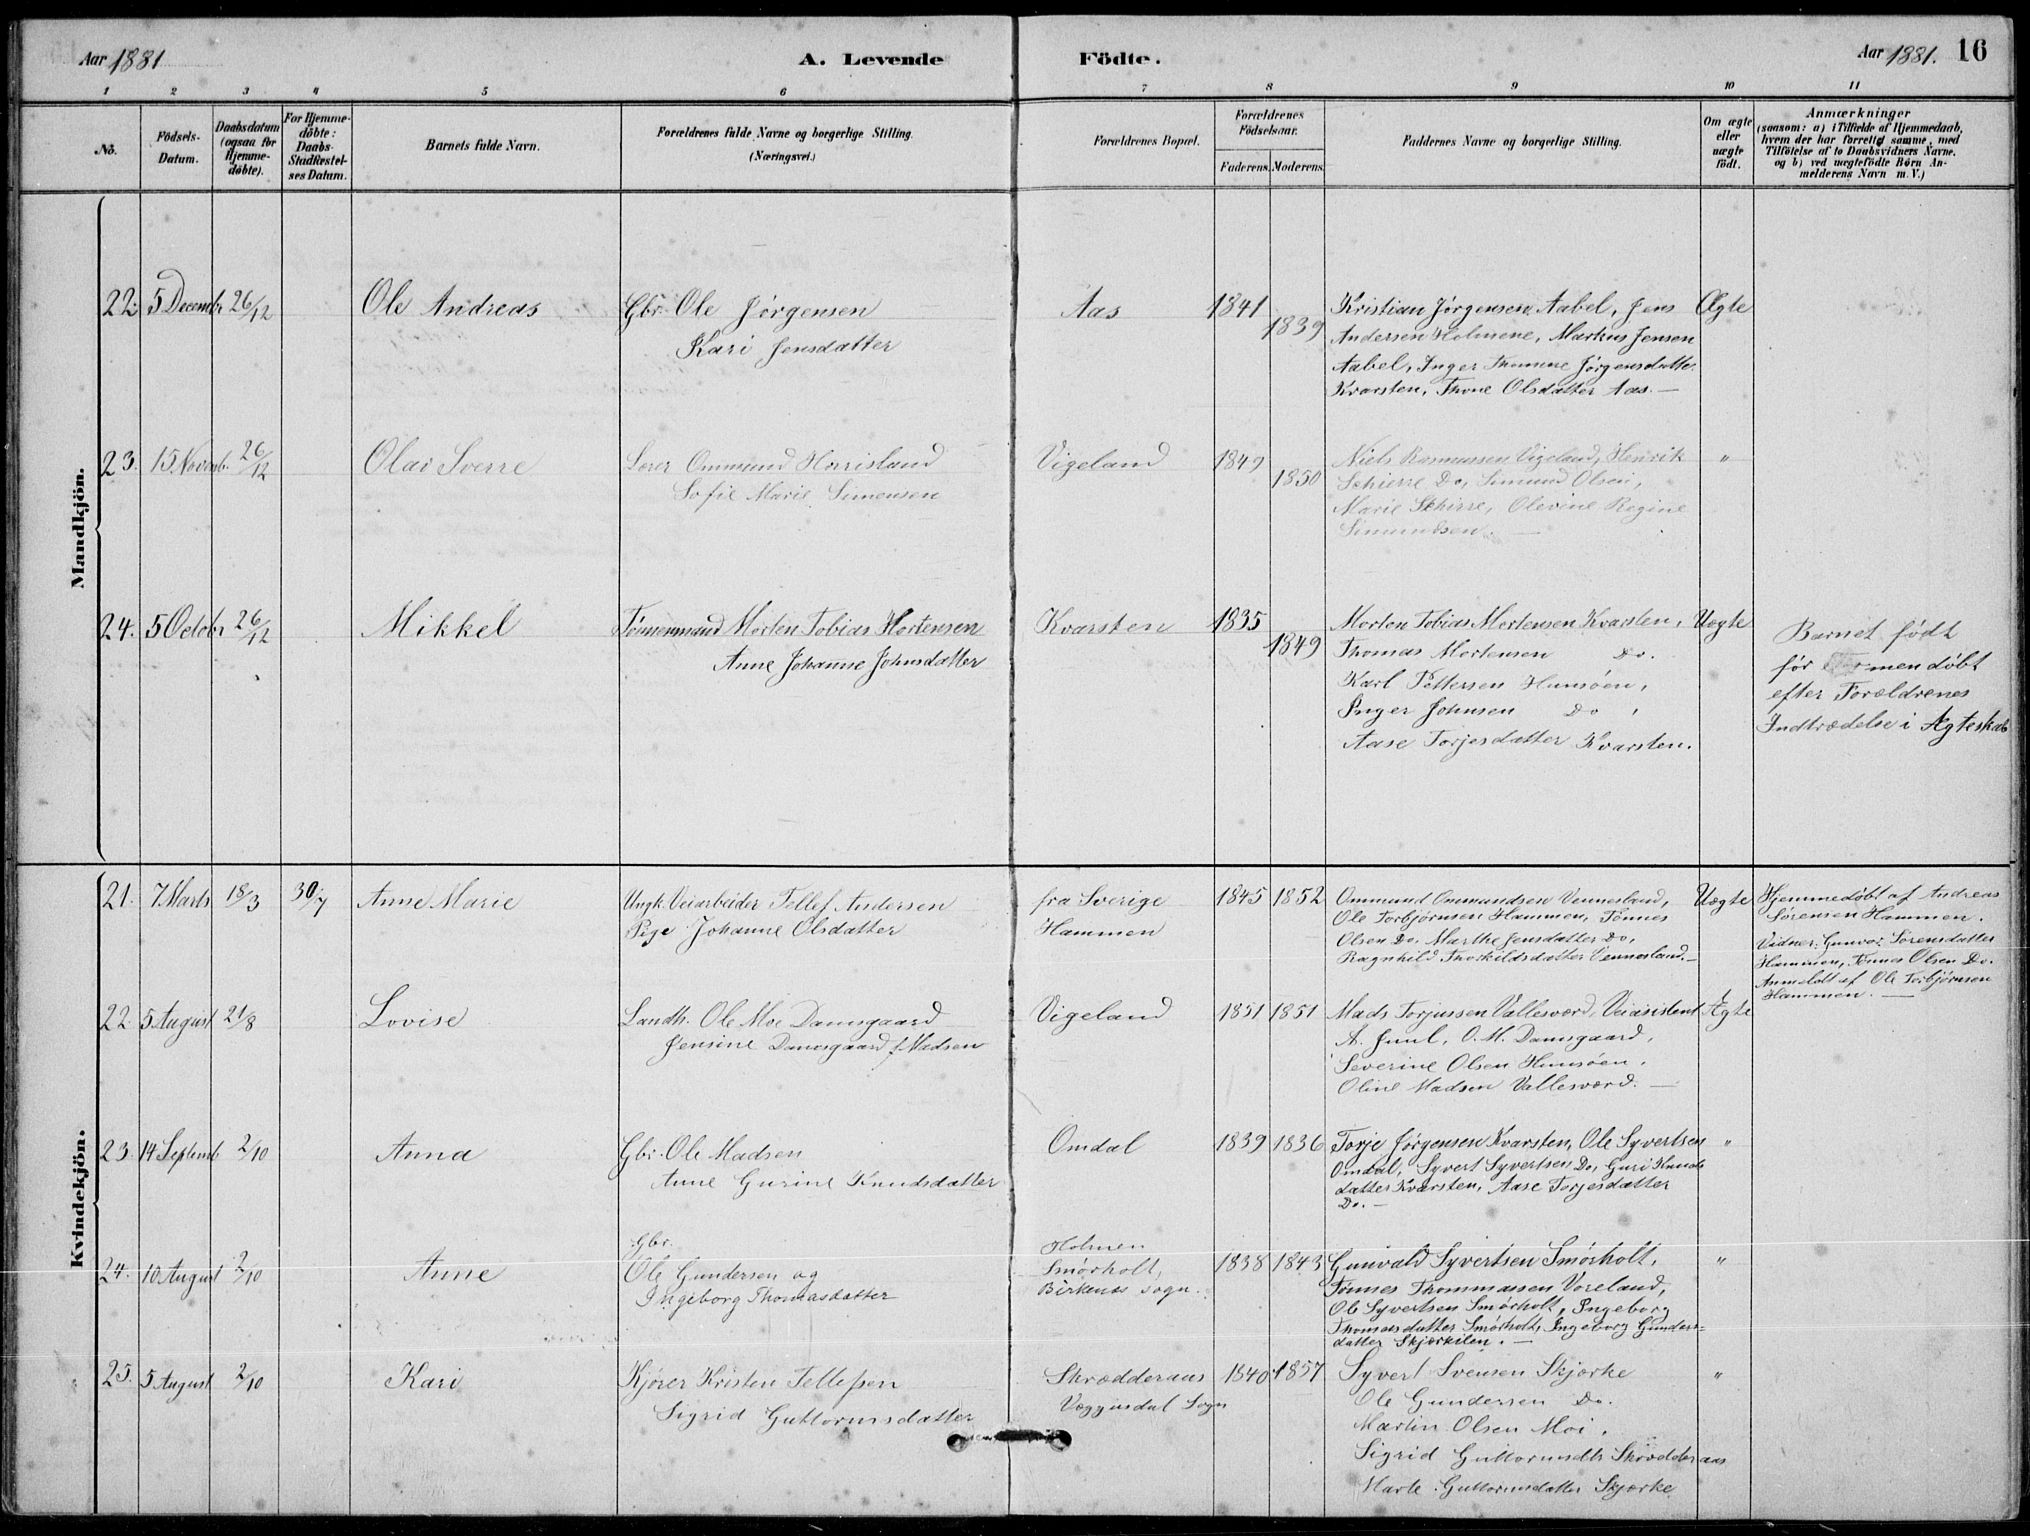 Aar 1881
A. Levende
Födte.
Aar 1881. 16
1 2 3 4 5 6 7 8 9 10 11
No.
Födsels-
Datum.
Daabsdatum
(ogsaa for
Hjemme-
døbte).
For Hjemme-
døbte:
Daabs-
Stadfæstel-
ses Datum.
Barnets fulde Navn.
Forældrenes fulde Navne og borgerlige Stilling.
(Næringsvei.)
Forældrenes Bopæl.
Forældrenes
Födselsaar.
Faderens. Moderens.
Faddernes Navne og borgerlige Stilling.
Om ægte
eller
uægte
födt.
Anmærkninger
(saasom: a) i Tilfælde af Hjemmedaab,
hvem der har forrettet samme, med
Tilföielse af to Daabsvidners Navne,
og b) ved uægtefödte Børn An-
melderens Navn m. V.)
Mandkjön.
22. 5 Decembr 26/12 Ole Andreas Gbr. Ole Jørgensen
Kari Jensdatter
Aas 1841 1839
Kristian Jørgensen Aabel, Jens
Andersen Holmene, Markus Jensen
Aabel, Inger Thomine Jørgensdatter
Kvarsten, Thone Olsdatter Aas. —
Ægte
23. 15 Novemb. 26/12 Olav Sverre Lærer Ommund Horrisland
Sofie Marie Simensen
Vigeland 1849 1850
Niels Rasmussen Vigeland, Henrik
Schierre Do, Simund Olsen,
Marie Schirre, Olevine Regine
Simundsen. —
"
24. 5 Octobr 26/12 Mikkel Tømmermand Morten Tobias Mortensen
Anne Johanne Johnsdatter
Kvarsten 1835 1849
Morten Tobias Mortensen Kvarsten,
Thomas Mortensen Do.
Karl Pettersen Hunsøen,
Inger Johnsen Do,
Aase Torjesdatter Kvarsten.
Uægte
Barnet født
før men døbt
efter Forældrenes
Indtrædelse i Ægteskab
Kvindekjön.
21. 7 Marts 18/3 30/7 Anne Marie Ungk. Veiarbeider Tellef Andersen
Pige Johanne Olsdatter
fra Sverige
Hammen
1845 1852
Ommund Ommundsen Vennesland,
Ole Torbjørnsen Hammen, Tønnes
Olsen Do, Marthe Jensdatter Do,
Ragnhild Thorkildsdatter Vennesland. —
Uægte
Hjemmedøbt af Andreas
Sørensen Hammen.
Vidner: Gunvor Sørensdatter
Hammen, Tønnes Olsen Do.
Anmeldt af Ole Torbjørnsen
Hammen. —
22. 5 August 21/8 Lovise Landh. Ole Moe Damsgaard
Jensine Damsgaard f. Madsen
Vigeland 1851 1851
Mads Torjussen Vallesværd, Veiasistent
A. Juul, O. M. Damsgaard,
Severine Olsen Hunsøen,
Oline Madsen Vallesværd. —
Ægte
23. 14 Septemb 2/10 Anna Gbr. Ole Madsen
Anne Gurine Knudsdatter
Omdal 1839 1836
Torje Jørgensen Kvarsten, Ole Syvertsen
Omdal, Syvert Syvertsen Do, Guri Knuds
datter Kvarsten, Aase Torjesdatter
Do. —
"
24. 10 August 2/10 Anne Gbr.
Ole Gundersen og
Ingeborg Thomasdatter
Holmen
Smørholt,
Birkenæs Sogn.
1838 1843
Gunvald Syvertsen Smørholt,
Tønnes Thommassen Voreland,
Ole Syvertsen Smørholt, Ingeborg
Thomasdatter Smørholt, Ingeborg Gunders-
datter Skjærkelen. —
"
25. 5 August 2/10 Kari Kjører Kristen Tellefsen
Sigrid Guttormsdatter
Skrædderaas
Væggusdal Sogn
1840 1857
Syvert Svensen Skjærke
Ole Gundersen Do.
Martin Olsen Moi,
Sigrid Guttormsdtr Skrædderaas
Marte Guttormsdatter Skjærke
"